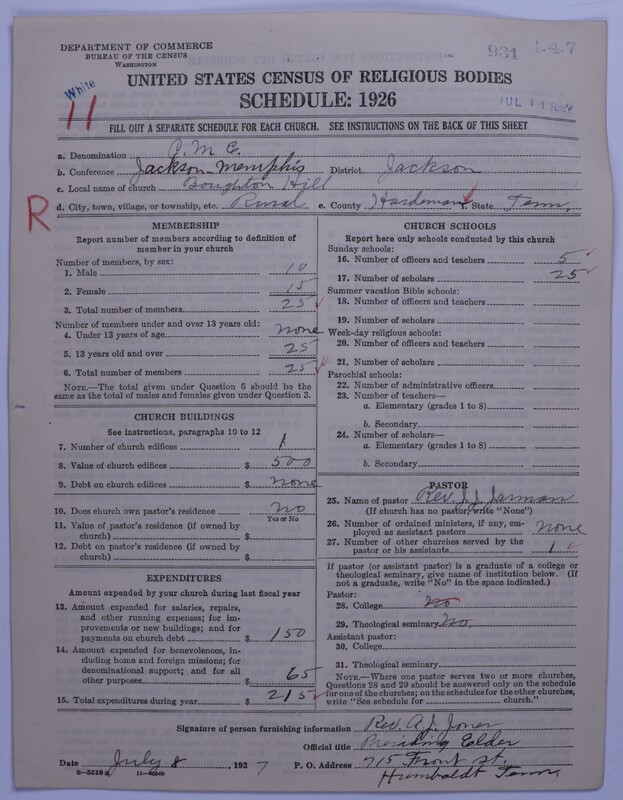 DEPARTMENT OF COMMERCE
BUREAU OF THE CENSUS
WASHINGTON
931 1-4-7
White
11
UNITED STATES CENSUS OF RELIGIOUS BODIES
SCHEDULE: 1926
JUL 11
FILL OUT A SEPARATE SCHEDULE FOR EACH CHURCH. SEE INSTRUCTIONS ON THE BACK OF THIS SHEET
a. Denomination C. M. E.
b. Conference Jackson-Memphis District Jackson
c. Local name of church Boughton Hill
R
d. City, town, village, or township, etc. Rural e. County Hardeman f. State Tenn.
MEMBERSHIP
Report number of members according to definition of
member in your church
Number of members, by sex:
1. Male 10
2. Female 15
3. Total number of members 25
Number of members under and over 13 years old:
4. Under 13 years of age none
5. 13 years old and over 25
6. Total number of members 25
NOTE.—The total given under Question 6 should be the
same as the total of males and females given under Question 3.
CHURCH BUILDINGS
See instructions, paragraphs 10 to 12
7. Number of church edifices 1
8. Value of church edifices $ 500
9. Debt on church edifices $ none
10. Does church own pastor's residence no
Yes or No
11. Value of pastor's residence (if owned by
church) $
12. Debt on pastor's residence (if owned by
church) $
EXPENDITURES
Amount expended by your church during last fiscal year
13. Amount expended for salaries, repairs,
and other running expenses; for im-
provements or new buildings; and for
payments on church debt $ 150
14. Amount expended for benevolences, in-
cluding home and foreign missions; for
denominational support; and for all
other purposes $ 65
15. Total expenditures during year $ 215
CHURCH SCHOOLS
Report here only schools conducted by this church
Sunday schools:
16. Number of officers and teachers 5
17. Number of scholars 25
Summer vacation Bible schools:
18. Number of officers and teachers
19. Number of scholars
Week-day religious schools:
20. Number of officers and teachers
21. Number of scholars
Parochial schools:
22. Number of administrative officers
23. Number of teachers—
a. Elementary (grades 1 to 8)
b. Secondary
24. Number of scholars—
a. Elementary (grades 1 to 8)
b. Secondary
PASTOR
25. Name of pastor Rev. J. J. Jarman
(If church has no pastor, write "None")
26. Number of ordained ministers, if any, em-
ployed as assistant pastors none
27. Number of other churches served by the
pastor or his assistants 1
If pastor (or assistant pastor) is a graduate of a college or
theological seminary, give name of institution below. (If
not a graduate, write "No" in the space indicated.)
Pastor:
28. College no
29. Theological seminary no
Assistant pastor:
30. College
31. Theological seminary
NOTE.—Where one pastor serves two or more churches,
Questions 28 and 29 should be answered only on the schedule
for one of the churches; on the schedules for the other churches,
write "See schedule for church."
Signature of person furnishing information Rev. A. J. Jones
Official title Presiding Elder
Date July 8, 1927 P. O. Address 715 Front st.
Humboldt Tenn.